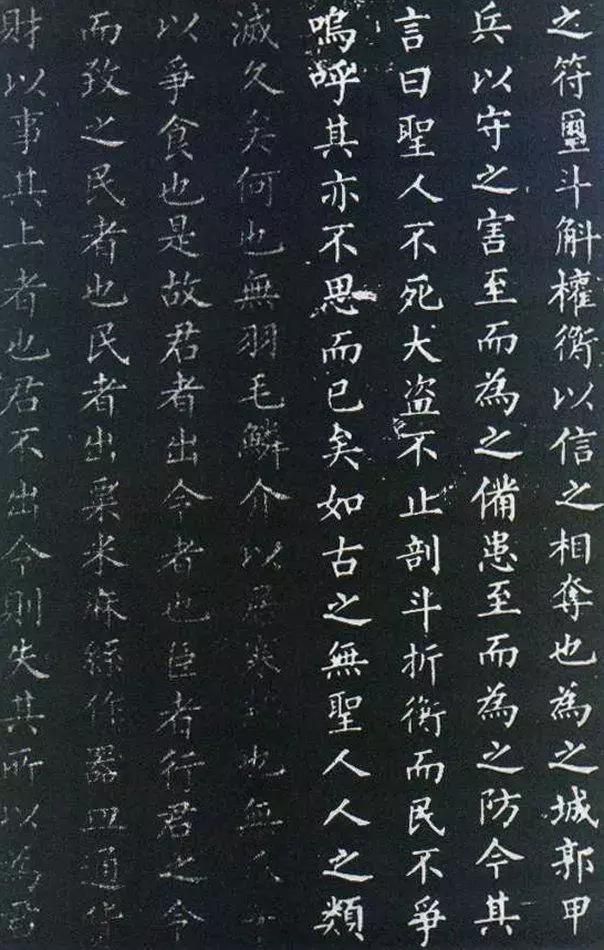 之符璽斗斛權衡以信之相奪也為之城郭甲
兵以守之害至而為之備患至而為之防今其
言曰聖人不死大盗不止剖斗折衡而民不爭
嗚呼其亦不思而已矣如古之無聖人人之類
滅久矣何也無羽毛鱗介以居寒也無
以爭食也是故君者出令者也臣者行君之令
而致之民者也民者出粟米麻絲作器皿通貨
財以事其上者也君不出令則失其所以為君